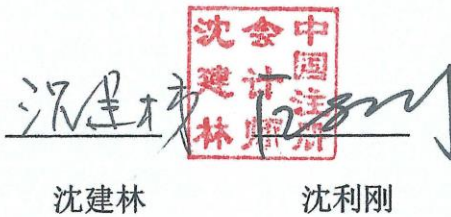 中国注册
会计师
沈建林
沈建林
沈建林 沈利刚